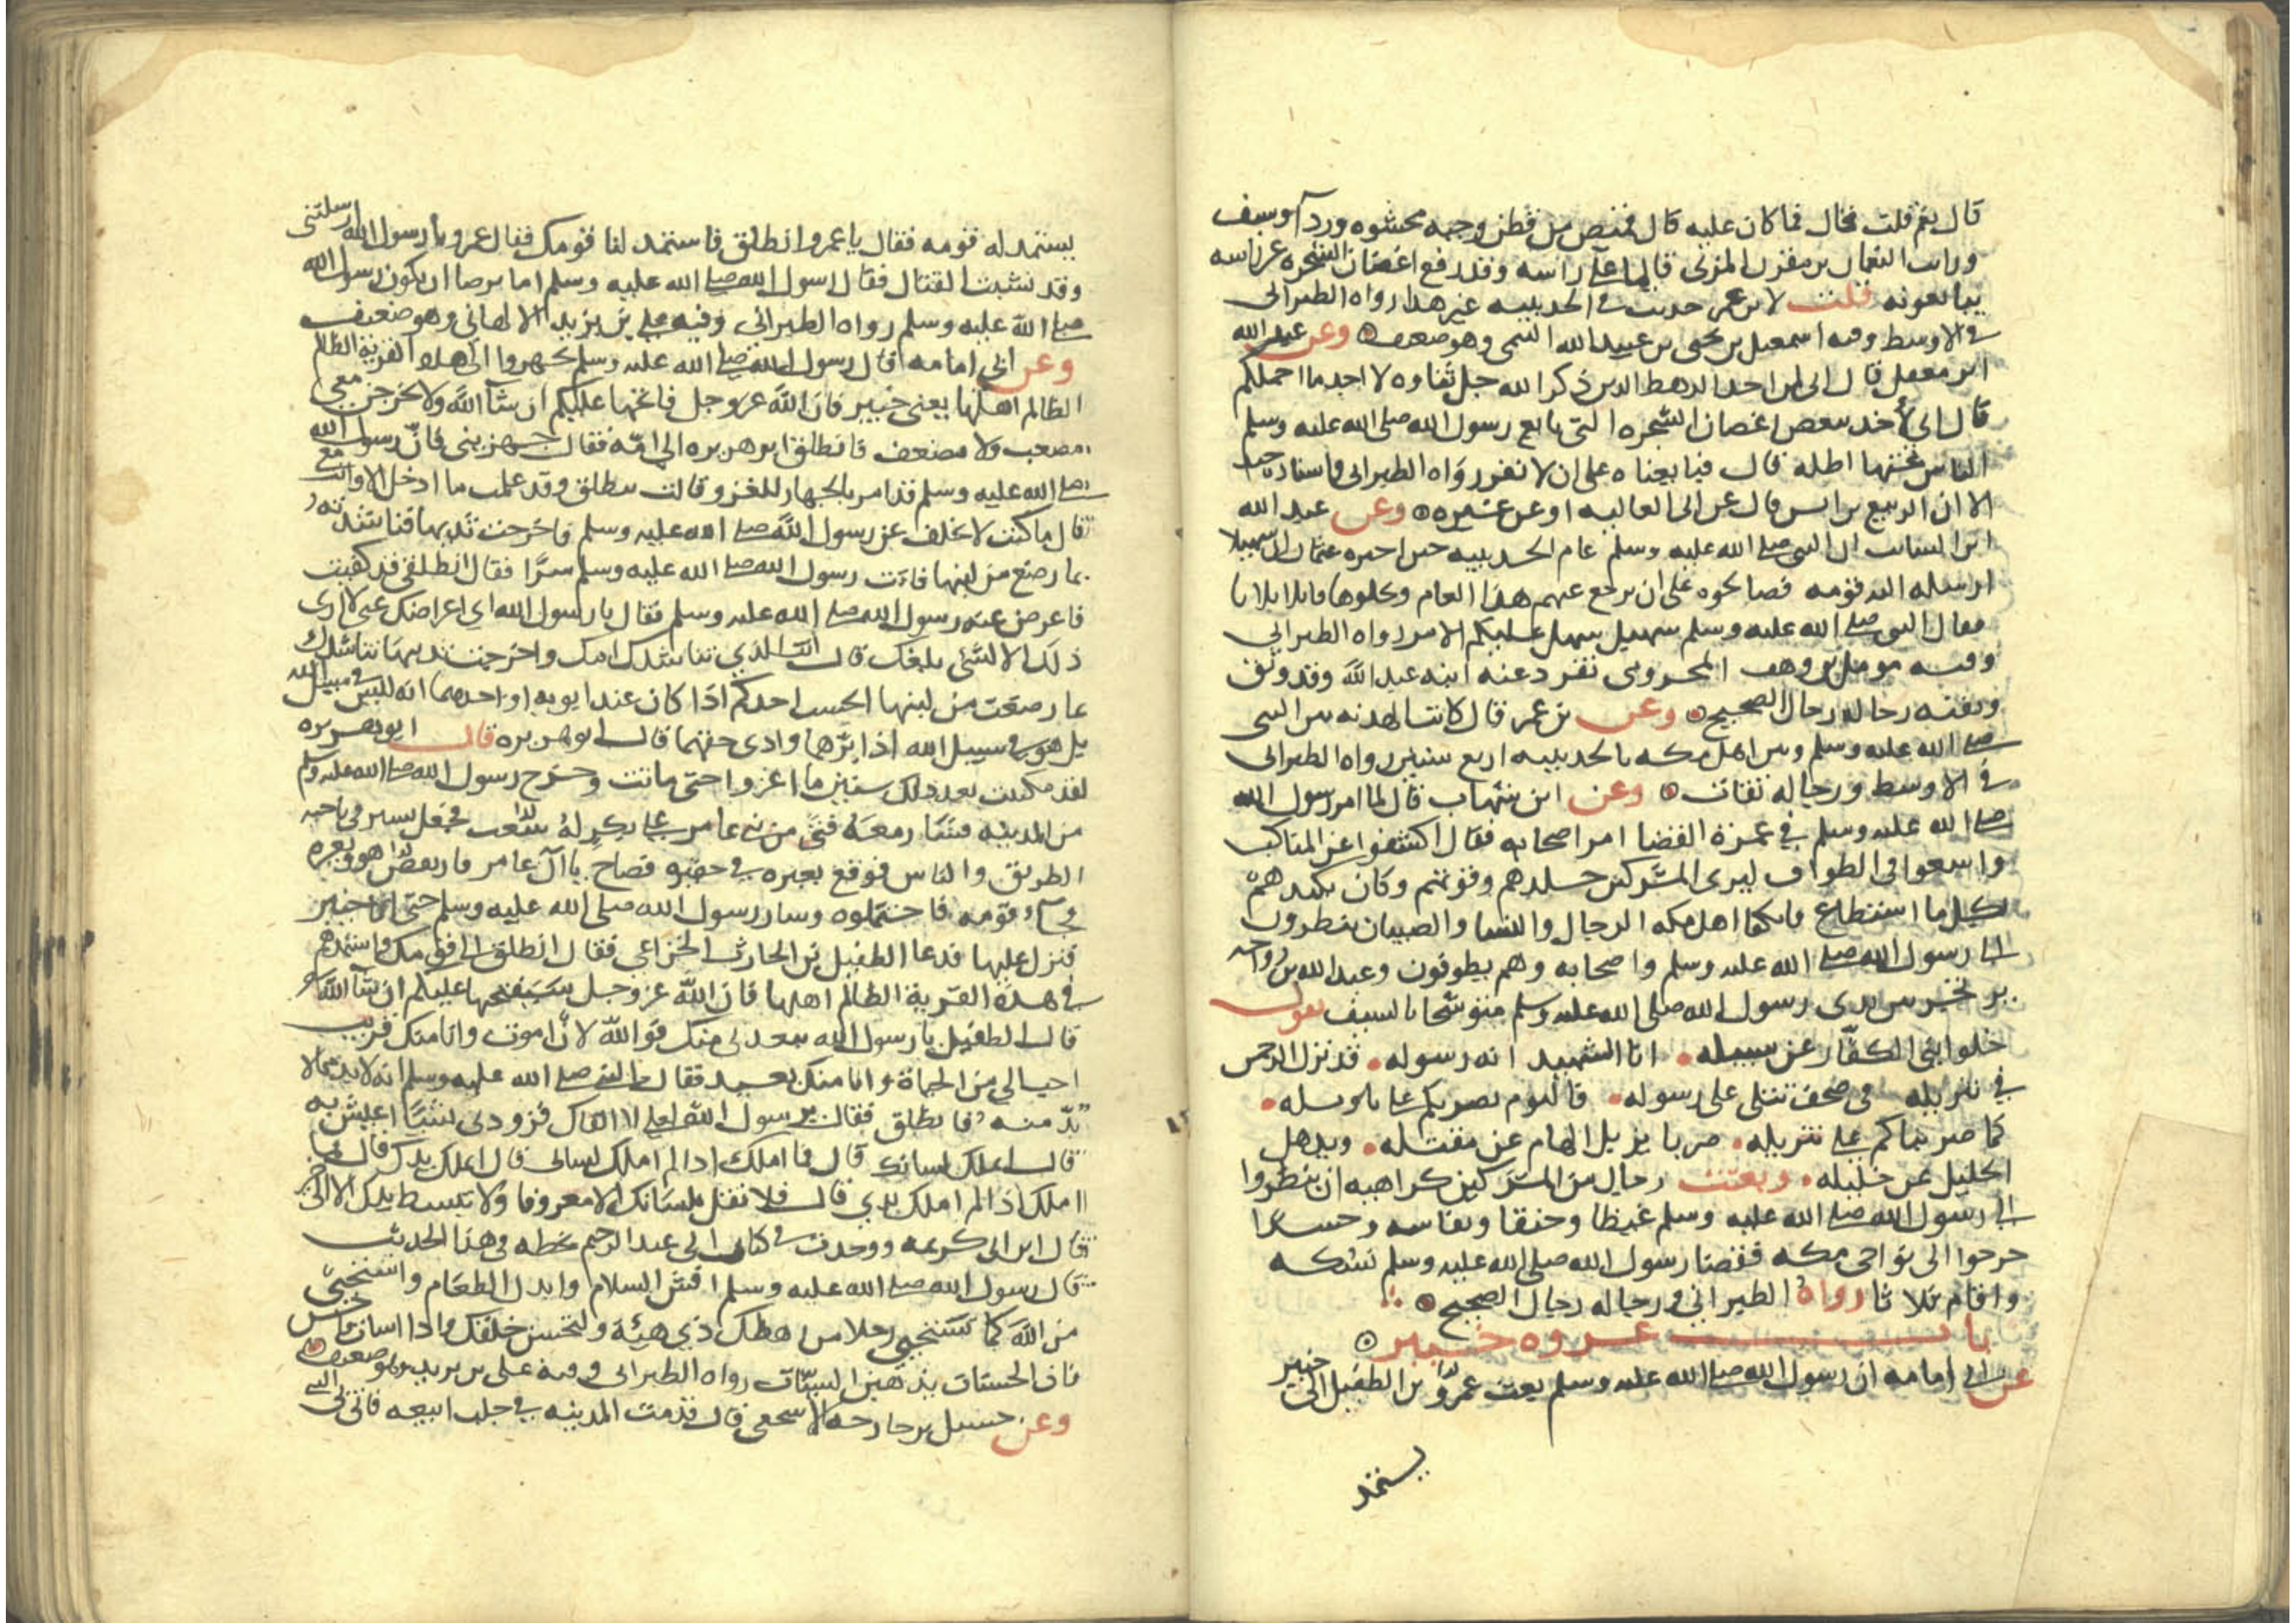 قال نعم قلت فحال فما كان عليه قال قميص من قطن وجبه محشوه وردا وسيف
ورايت النعمان بن مقرن المزنى قايما على راسه وقد رفع اغصان الشجره عن راسه
يبايعونه قلت لابن عمر حديث فى الحديبيه غير هذا رواه الطبرانى
فى الاوسط وفيه اسمعيل بن يحيى بن عبيد الله التيمى وهو ضعيف وعن عبد الله
ابن مغفل قال انى لمن احد الرهط الذين ذكر الله جل ثناوه لا اجد ما احملكم
قال انى لأخد ببعض اغصان الشجره التى بايع رسول الله صلى الله عليه وسلم
الناس تحتها اظله قال فبايعناه على ان لا نفر رواه الطبرانى واسناده جيد
الا ان الربيع بن انس قال عن ابى العاليه او عن غيره وعن عبد الله
ابن السائب ان النبى صلى الله عليه وسلم عام الحديبيه حين اخبره عثمان ان سهيلا
ارسله اليه قومه فصالحوه على ان يرجع عنهم هذا العام ويخلوها قابلا ثلاثا
فقال النبى صلى الله عليه وسلم سهيل سهل عليكم الامر رواه الطبرانى
وفيه مومل بن وهب المخزومى تفرد عنه ابنه عبد الله وقد وثق
وبقيه رجاله رجال الصحيح وعن بن عمر قال كانت الهدنه بين النبى
صلى الله عليه وسلم وبين اهل مكه بالحديبيه اربع سنين رواه الطبرانى
فى الاوسط ورجاله ثقات وعن ابن شهاب قال لما امر رسول الله
صلى الله عليه وسلم فى عمرة القضا امر اصحابه فقال اكشفوا عن المناكب
واسعوا فى الطواف ليرى المشركين جلدهم وقوتهم وكان يكيدهم
بكل ما استطاع فانكفا اهل مكه الرجال والنسا والصبيان ينظرون
الى رسول الله صلى الله عليه وسلم واصحابه وهم يطوفون وعبد الله بن رواحه
يرتجز بين يدى رسول الله صلى الله عليه وسلم متوشحا بالسيف يقول
خلوا بنى الكفار عن سبيله انا الشهيد انه رسوله قد نزل الرحمن
فى تنزيله فى صحف تتلى على رسوله فاليوم نضربكم على تاويله
كما ضربناكم على تنزيله ضربا يزيل الهام عن مقيله ويذهل
الخليل عن خليله وبعثت رجال من المشركين كراهيه ان ينظروا
الى رسول الله صلى الله عليه وسلم غيظا وحنقا ونفاسه وحسدا
خرجوا الى نواحى مكه فقضا رسول الله صلى الله عليه وسلم نسكه
واقام ثلاثا رواه الطبرانى ورجاله رجال الصحيح
باب غزوه خيبر
عن ابى امامه ان رسول الله صلى الله عليه وسلم بعث عمرو بن الطفيل الى خيبر
يستمد
يستمد له قومه فقال يا عمرو انطلق فاستمد لنا قومك فقال عمرو يا رسول الله ارسلتنى
وقد نشبت القتال فقال رسول الله صلى الله عليه وسلم اما ترضا ان تكون رسول رسول الله
صلى الله عليه وسلم رواه الطبرانى وفيه على بن يزيد الالهانى وهو ضعيف
وعن ابى امامه قال رسول الله صلى الله عليه وسلم تجهزوا الى هذه القرية الظالم
الظالم اهلها يعنى خيبر فان الله عز وجل فاتحها عليكم ان شآ الله ولا يخرجن معى
مصعب ولا مضعف فانطلق ابو هريره الى امه فقال جهزينى فان رسول الله
صلى الله عليه وسلم قد امر بالجهاز للغزو قالت تنطلق وقد علمت ما ادخل الا وانت معى
قال ما كنت لاتخلف عن رسول الله صلى الله عليه وسلم فاخرجت ثديها فناشدته
بما رضع من لبنها فاتت رسول الله صلى الله عليه وسلم سرا فقال انطلقى فقد كفيت
فاعرض عنه رسول الله صلى الله عليه وسلم فقال يا رسول الله ارى اعراضك عنى لا ارى
ذلك الا لشى بلغك قال انت الذى تناشدك امك واخرجت ثديها تناشدك
بما رضعت من لبنها ايحسب احدكم اذا كان عند ابويه او احدهما انه ليس فى سبيل الله
بل هو فى سبيل الله اذا برهما وادى حقهما قال ابو هريره قال ابو هريره
لقد مكثت بعد ذلك سنتين ما اغزوا حتى ماتت وخرج رسول الله صلى الله عليه وسلم
من المدينه فتى من بنى عامر على بكر له صعب فجعل يسير فى ناحيه
الطريق والناس فوقع بعيره فى حفره فصاح يا آل عامر فارتعص هو وبعيره
وجاء قومه فاحتملوه وسار رسول الله صلى الله عليه وسلم حتى اتى خيبر
فنزل عليها فدعا الطفيل بن الحارث الخزاعى فقال انطلق الى قومك فاستمدهم
فى هذه القرية الظالم اهلها فان الله عز وجل سيفتحها عليكم ان شآ الله
قال الطفيل يا رسول الله تبعدنى منك فوالله لان اموت وانا منك قريب
احب الى من الحياة وانا منك بعيد فقال النبى صلى الله عليه وسلم انه لا بد مما لا
بد منه فانطلق فقال يا رسول الله لعلى لا القاك فزودنى شيئا اعيش به
قال املك لسانك قال فما املك اذا لم املك لسانى قال املك يدك قال فما
املك اذا لم املك يدى قال فلا تقل بلسانك الا معروفا ولا تبسط يدك الا الى خير
قال ابن ابى كريمه ووجدت فى كتاب ابى عبد الرحيم بخطه فى هذا الحديث
قال رسول الله صلى الله عليه وسلم افش السلام وابذل الطعام واستحيى
من الله كما تستحيى رجلا من رهطك ذى هيئة ولتحسن خلقك واذا اسات فاحسن
فان الحسنات يذهبن السيئات رواه الطبرانى وفيه على بن يزيد وهو ضعيف
وعن حسيل بن خارجه الاشجعى قال قدمت المدينه فى جلب ابيعه فاتى بى الى النبى